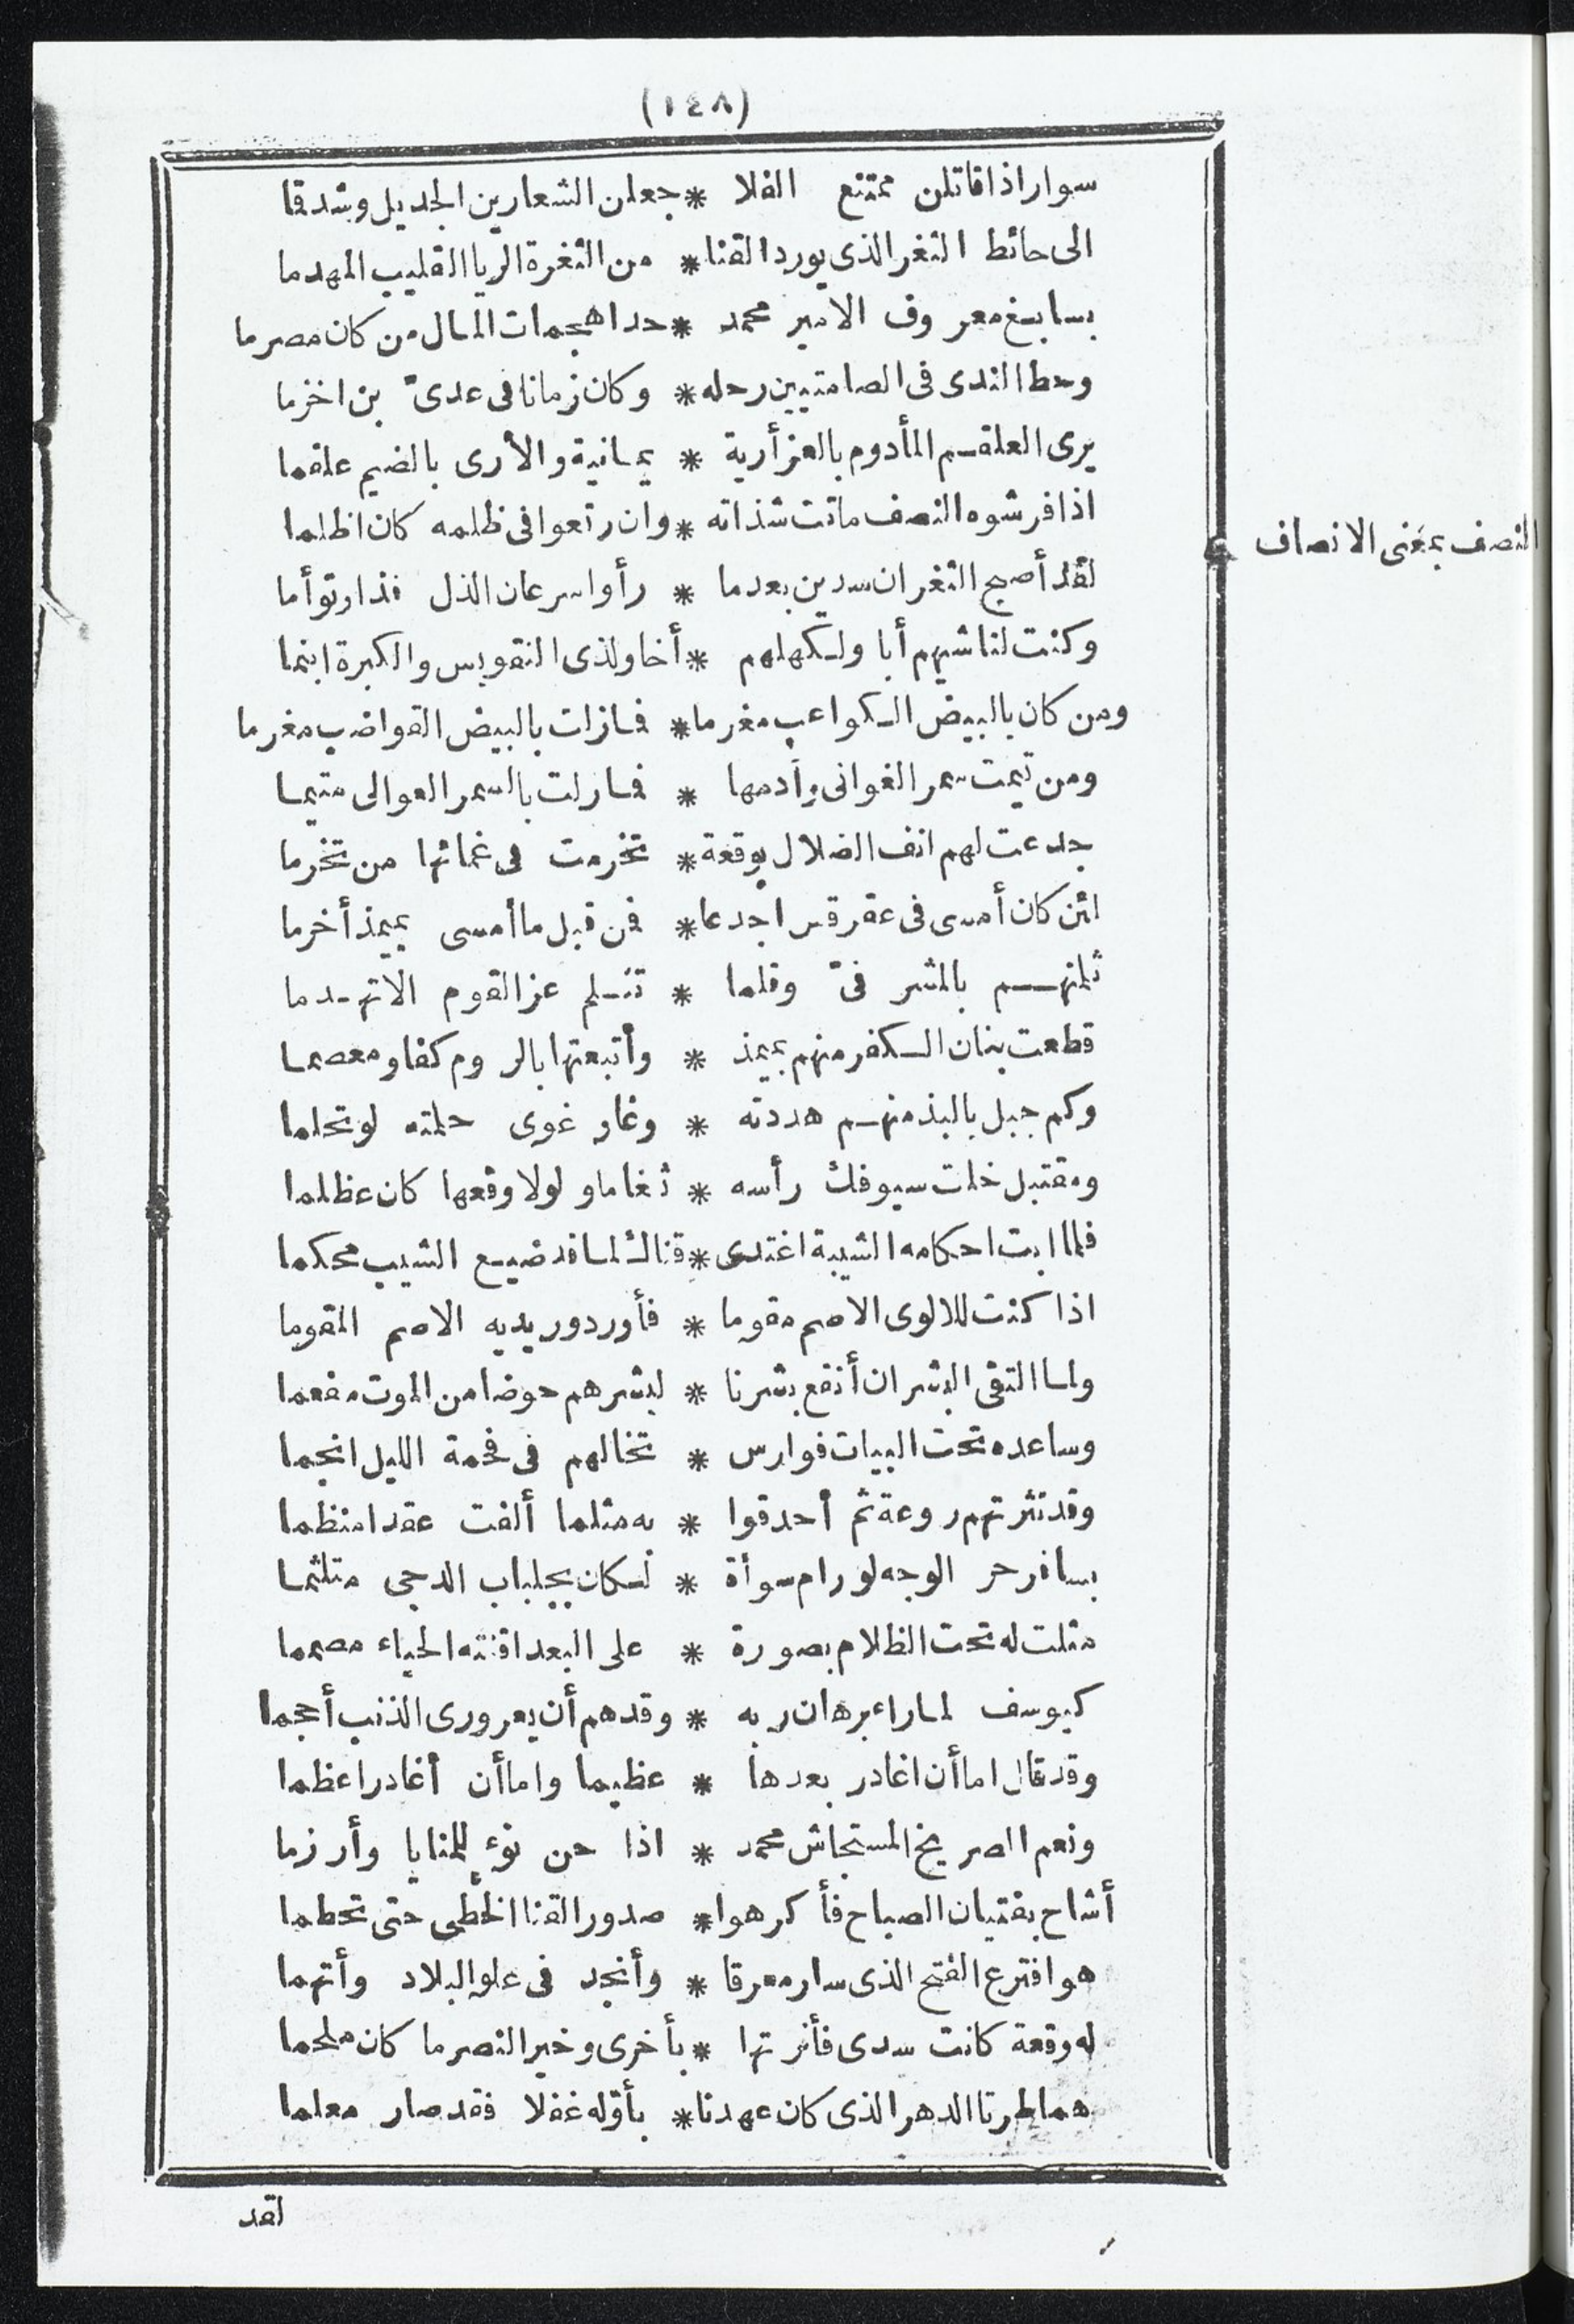 (١٤٨)
سوار اذا قاتلن ممتنع الفلا * جعلن الشعارين الجديل وشدقا
الى حائط الثغر الذى يورد القنا * من الثغرة الريا القليب المهدما
بسابغ معروف الامير محمد * حدا هجمات المال من كان مصرما
وحط الندى فى الصامتيين رحله * وكان زمانا فى عدىّ بن اخزما
يرى العلقم المأدوم بالعز أرية * يمانية والأرى بالضيم علقما
اذا فرشوه النصف ماتت شذاته * وان رتعوا فى ظلمه كان اظلما
النصف بمعنى الانصاف
لقد أصبح الثغران سدين بعدما * رأوا سرعان الذل فذا وتوأما
وكنت لناشيهم أبا ولكهلهم * أخا ولذى التقويس والكبرة ابنما
ومن كان بالبيض الكواعب مغرما * فما زلت بالبيض القواضب مغرما
ومن تيمت سمر الغوانى وأدمها * فما زلت بالسمر العوالى متيما
جدعت لهم انف الضلال بوقعة * تخرمت فى غمائها من تخرما
لئن كان أمسى فى عقرقس اجدعا * فمن قبل ما أمسى بميمذ أخرما
ثلمتهم بالمشرفىّ وقلما * تثلم عز القوم الا تهدما
قطعت بنان الكفر منهم بميمذ * وأتبعتها بالروم كفا ومعصما
وكم جبل بالبذ منهم هددته * وغاو غوى حلمته لو تحلما
ومقتبل خلت سيوفك رأسه * ثغاما ولولا وقعها كان عظلما
فلما ابت احكامه الشيبة اغتدى * قناك لما قد ضيع الشيب محكما
اذا كنت للالوى الاصم مقوما * فأورد وريديه الاصم المقوما
ولما التقى البشران أنقع بشرنا * لبشرهم حوضا من الموت مفعما
وساعده تحت البيات فوارس * تخالهم فى فحمة الليل انجما
وقد نثرتهم روعة ثم أحدقوا * به مثلما ألفت عقدا منظما
بسافر حر الوجه لو رام سوأة * لكان بجلباب الدجى متلثما
مثلت له تحت الظلام بصورة * على البعد اقنته الحياء مصمما
كيوسف لما راء برهان ربه * وقد هم أن يعرورى الذنب أحجما
وقد قال اما أن اغادر بعدها * عظيما واما أن أغادر اعظما
ونعم الصريخ المستجاش محمد * اذا حن نوء للمنايا وأرزما
أشاح بفتيان الصباح فأكرهوا * صدور القنا الخطى حتى تحطما
هو افترع الفتح الذى سار معرقا * وأنجد فى علو البلاد وأتهما
له وقعة كانت سدى فأنرتها * بأخرى وخير النصر ما كان ملحما
هما طرتا الدهر الذى كان عهدنا * بأوّله غفلا فقد صار معلما
لقد